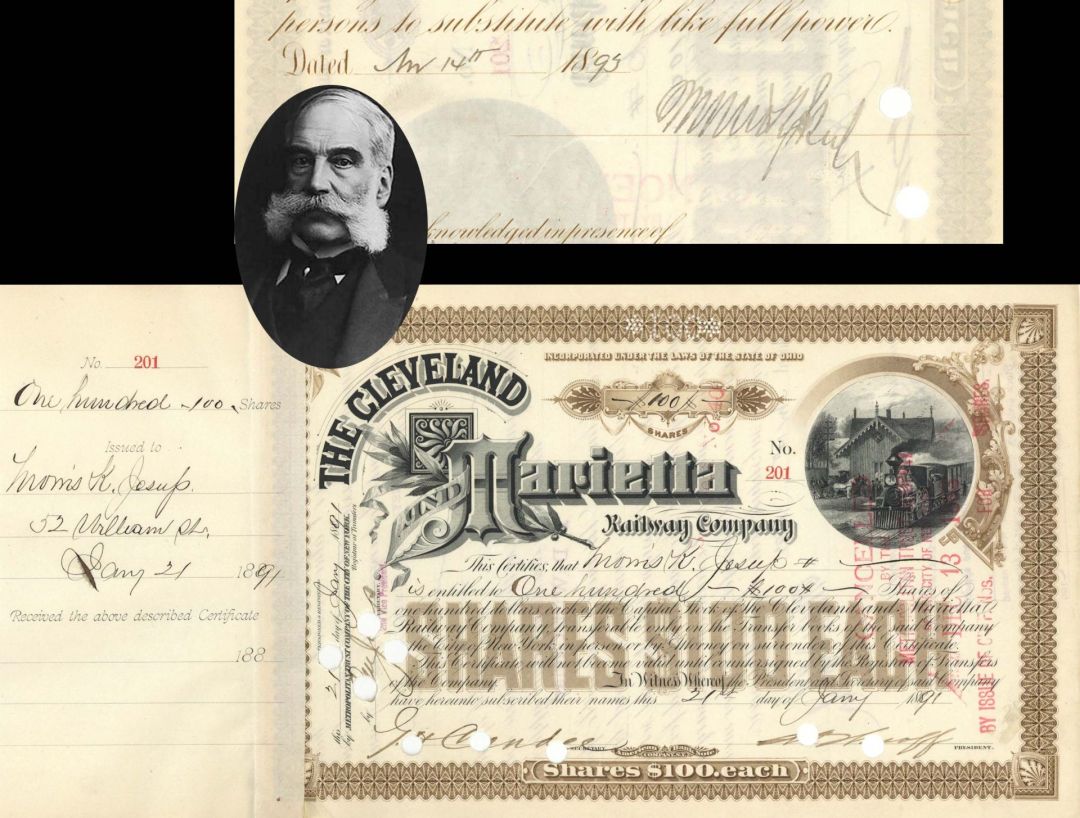 persons to substitute with like full power.
Dated Nov 14th 1893
knowledged in presence of
No. 201
One hundred -100- Shares
Issued to
Morris K. Jesup.
52 William St.
Jany 21 1891
Received the above described Certificate
188
100
INCORPORATED UNDER THE LAWS OF THE STATE OF OHIO
THE CLEVELAND
100
SHARES
AND Marietta
No.
201
Railway Company
This Certifies, that Morris K. Jesup
is entitled to One hundred -100- Shares of
one hundred dollars each of the Capital Stock of The Cleveland and Marietta
Railway Company, transferable only on the Transfer books of the said Company
in the City of New York in person or by Attorney on surrender of this Certificate.
This Certificate will not become valid until countersigned by the Registrar of Transfers
of the Company. In Witness Whereof the President and Secretary of said Company
have hereunto subscribed their names this 21st day of Jany 1891
SECRETARY.
American Bank Note
COMPANY
PRESIDENT.
Shares $100. each
this 21 day of Jany 1891
by METROPOLITAN TRUST COMPANY OF THE CITY OF NEW YORK,
Registrar of Transfers
DEC 13
BY ISSUE OF
FOR